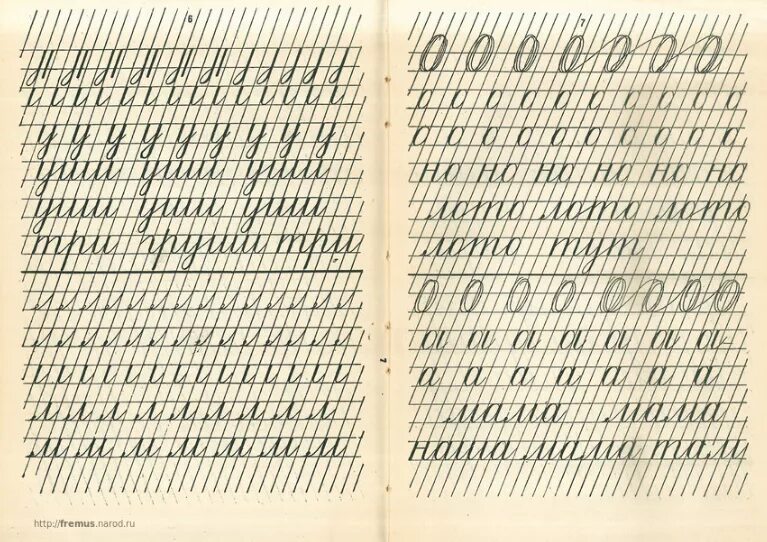 6
у у у у у у у у у
уши уши уши
уши уши уши
три груши три
http://fremus.narod.ru
7
о о о о о о о
о о о о о о о о о о
о о о о о о о о о о
но но но но но но
лото лото лото
лото тут
о о о о о о о о
а а а а а а а
а а а а а а а
мама мама
наша мама там